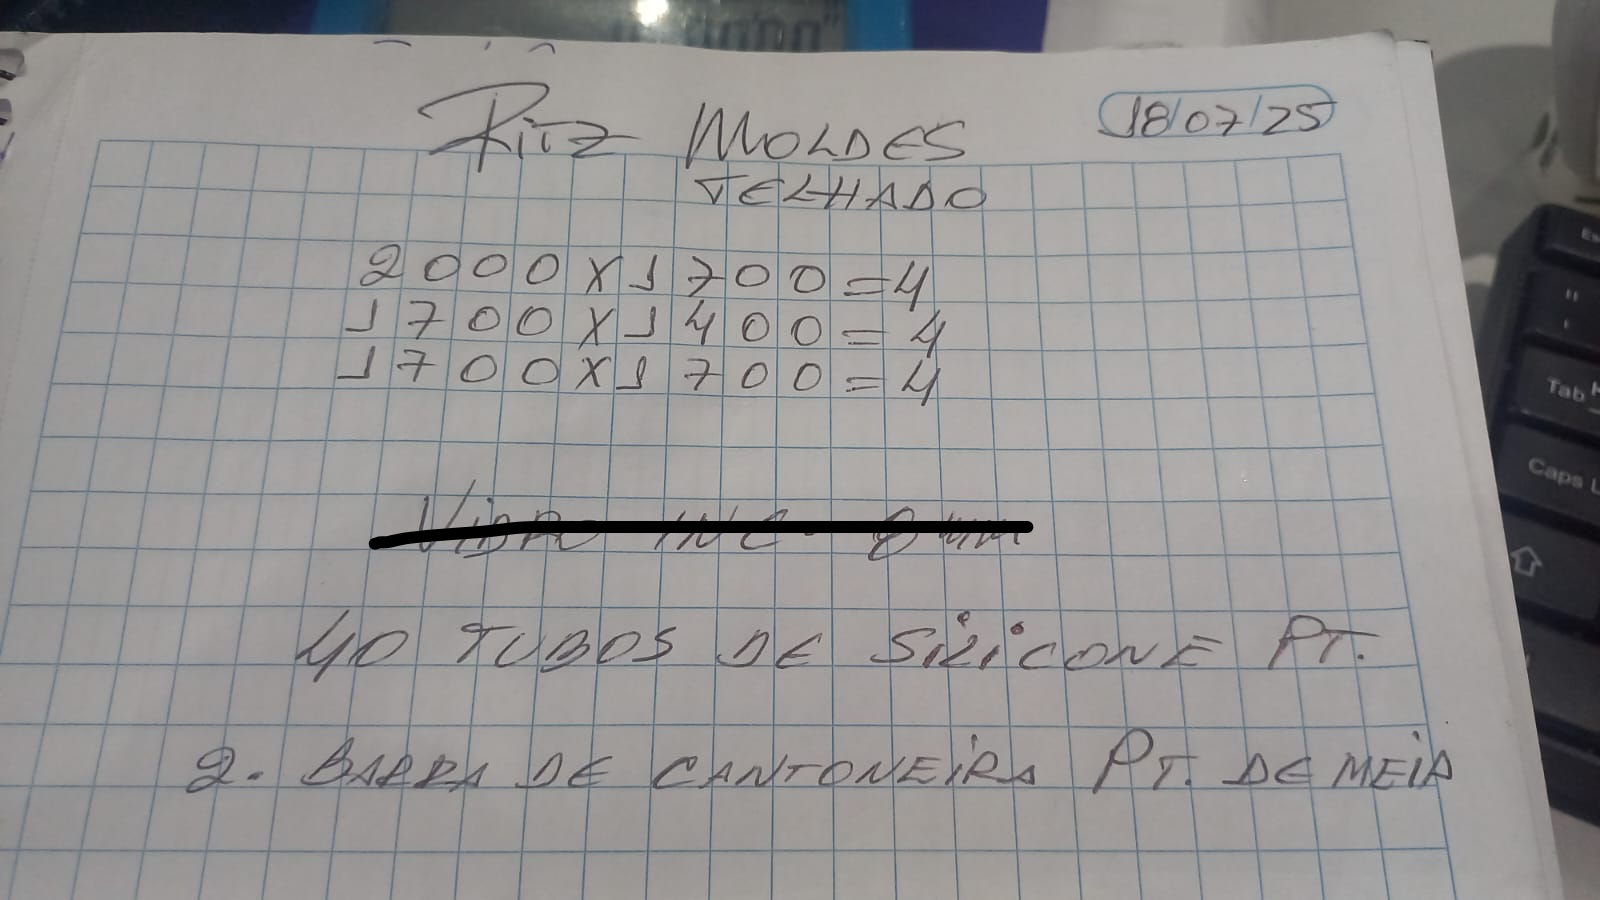 Ritz MOLDES
18/07/25
TELHADO
2000X1700=4
1700X1400=4
1700X1700=4
VIDRO INC. 8mm
40 TUBOS DE SILICONE PT.
2. BARRA DE CANTONEIRA PT. DE MEIA